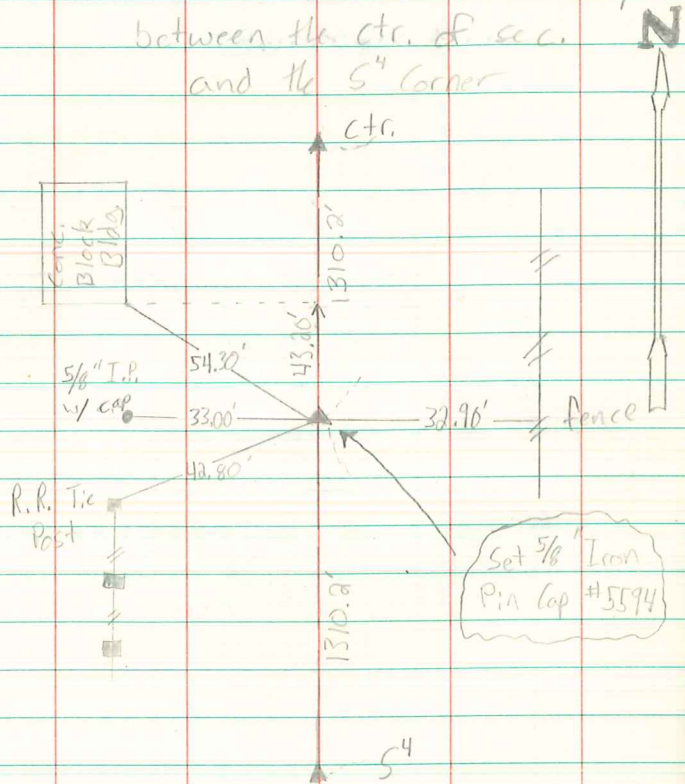 between the ctr. of sec.
and the S⁴ Corner
N
ctr.
Conc.
Block
Bldg.
1310.2'
43.20'
54.30'
5/8" I.P.
w/ cap
33.00'
32.90'
fence
42.80'
R.R. Tie
Post
Set 5/8" Iron
Pin Cap #5594
1310.2'
S⁴